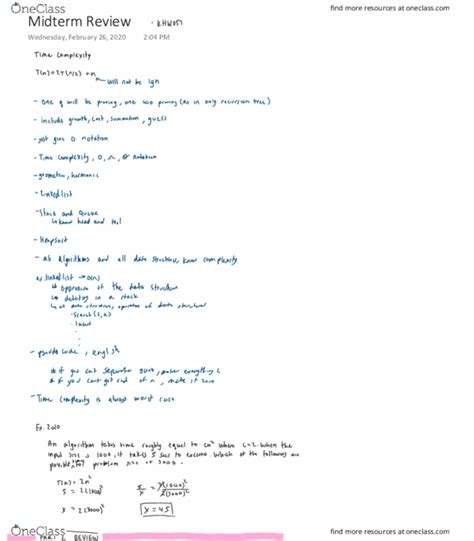 OneClass
find more resources at oneclass.com
Midterm Review
Wednesday, February 26, 2020 2:04 PM
Time Complexity
T(n)=2T(n/2) + n
will not be lgn
- one q will be proving, one w/o proving (as in only recursion tree)
- include growth, cost, summation, guess
- just give O notation
- Time complexity, O, Ω, Θ notation
- geometric, harmonic
- Linked list
- Stack and Queue
↳ know head and tail
- Heapsort
- All algorithms and all data structures, know complexity
linked list → O(n)
↳ operation of the data structure
↳ deleting in a stack
↳ all data structures, operation of data structure
- Search (S, x)
- Insert
- pseudo code, english
* if you can't separate ours, make everything c
* if you can't get rid of n, make it zero
- Time complexity is always worst case
Ex. 2020
An algorithm takes time roughly equal to cn² where c=2. When the
input size is 1000, it takes 5 secs to execute. Which of the following are
possible problem size of 3000.
T(n) = 2n²
5 = 2(1000)²
x = 2(3000)²
5/x = 2(1000)²/2(3000)²
x = 45
OneClass
PART 2 REVIEW
find more resources at oneclass.com